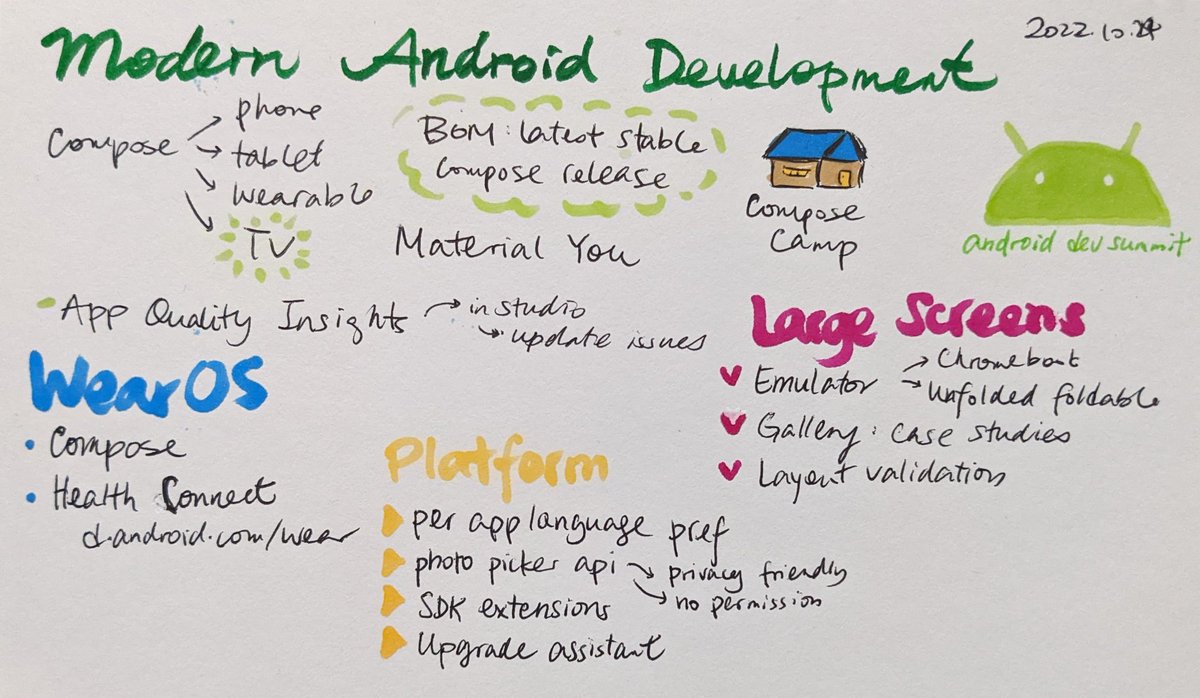 2022.10.24
Modern Android Development
Compose
phone
tablet
wearable
TV
BOM: latest stable
Compose release
Material You
Compose
Camp
android dev summit
App Quality Insights
in studio
update issues
Large Screens
Emulator
Chromebook
Unfolded foldable
Gallery: case studies
Layout validation
WearOS
Compose
Health Connect
d.android.com/wear
Platform
per app language pref
photo picker api
privacy friendly
no permission
SDK extensions
Upgrade assistant